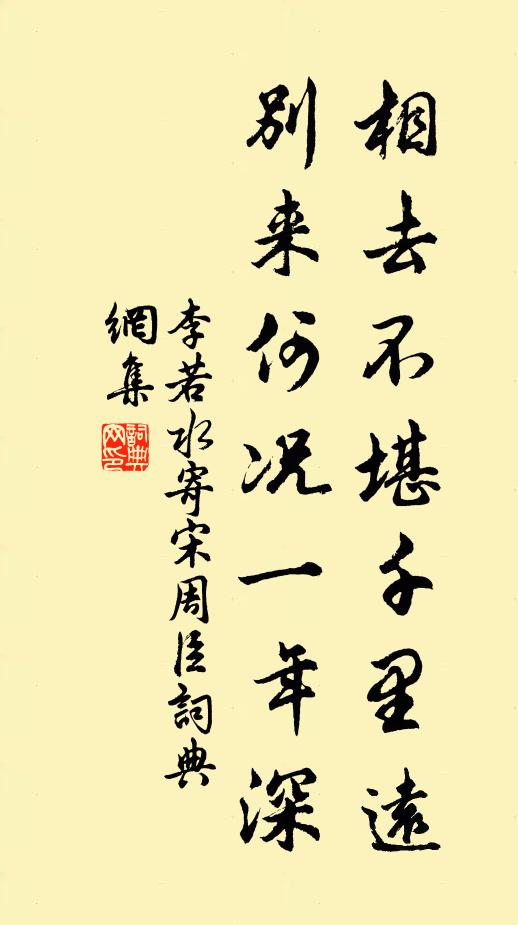 相去不堪千里遠
別来何况一年深
李若水寄宋周臣詞典
網集
詞典网印